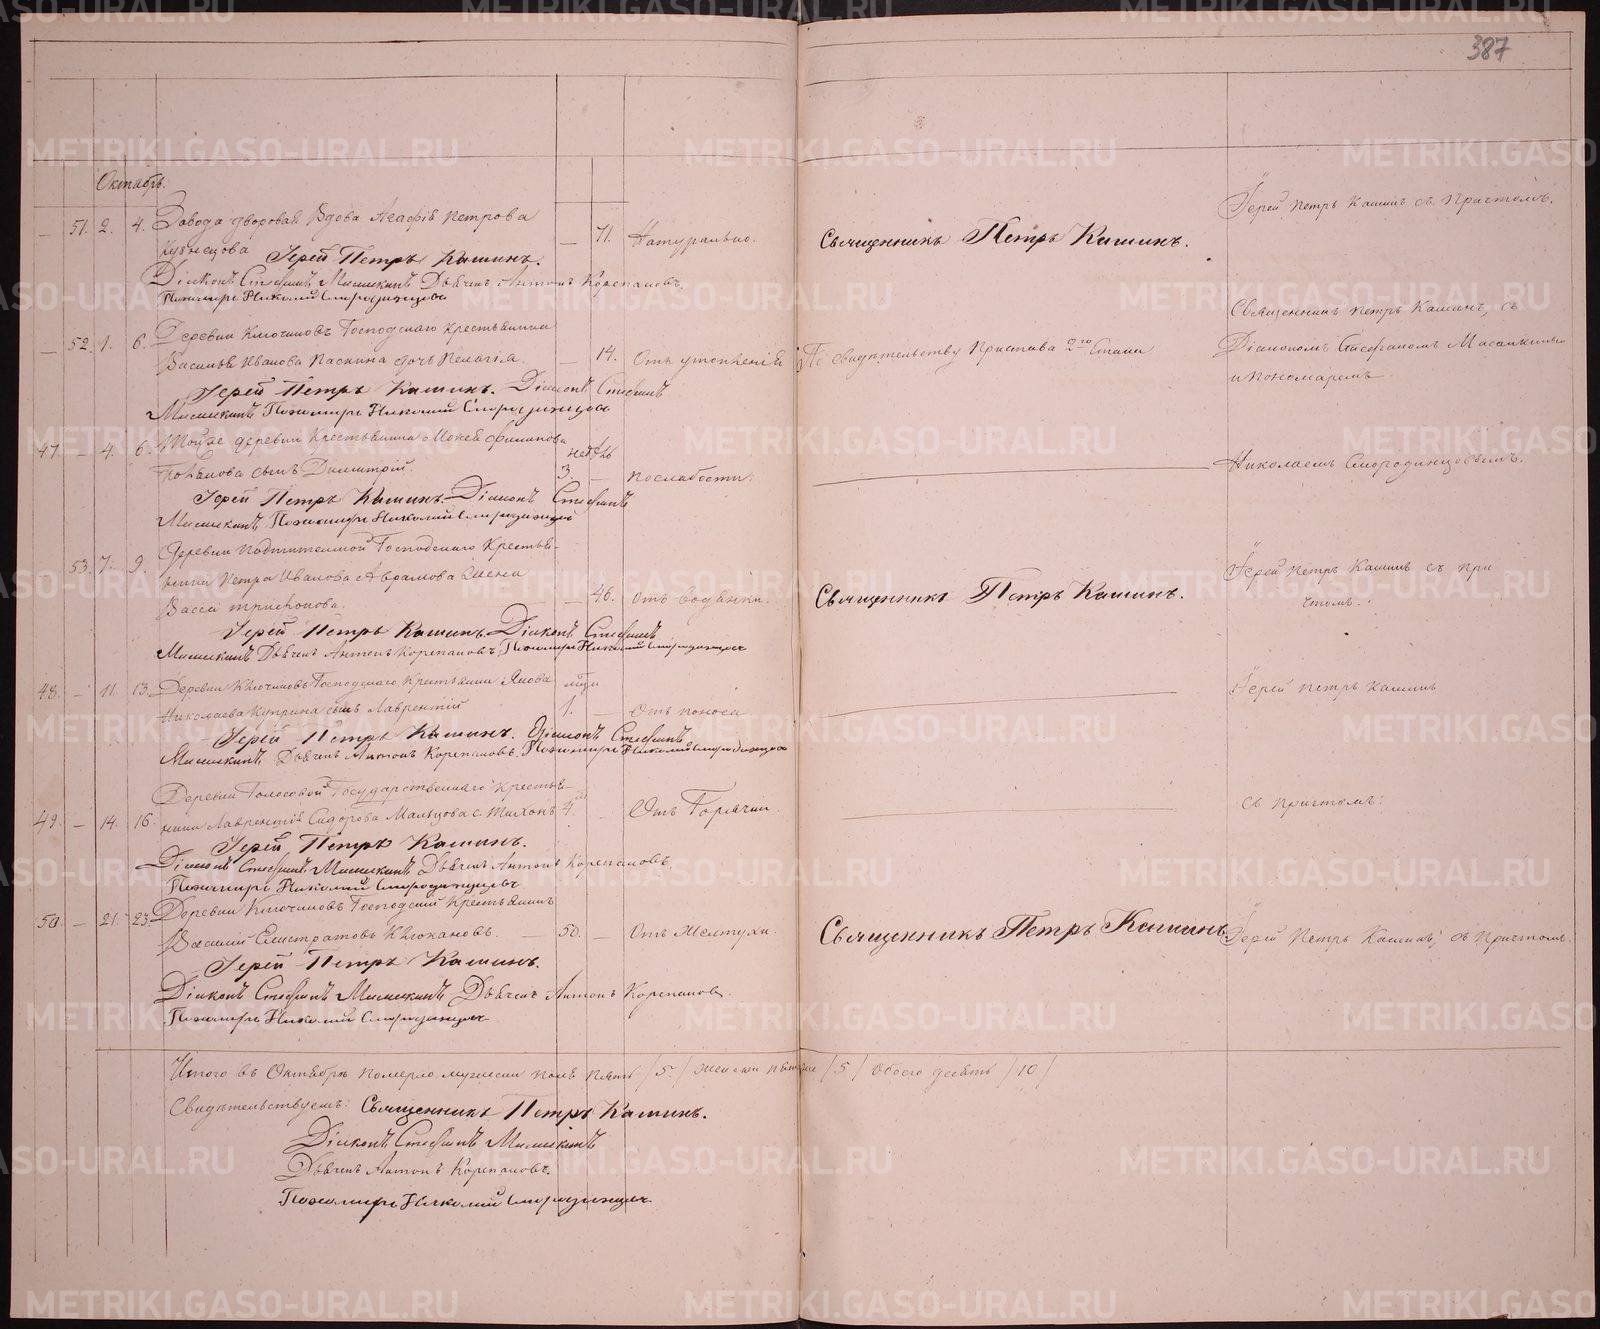 387
Октябрь.
51. 2. 4. Завода дворовая Вдова Агафія Петрова
Кузнецова
71. Натурально.
Іерей Петръ Кашинъ.
Діаконъ Стефанъ Дьячекъ Антонъ Корепановъ.
Пономарь Николай Смородинцовъ
Священникъ Петръ Кашинъ.
Іерей Петръ Кашинъ съ Причтомъ.
52. 1. 6. Деревни Ключиковъ Господскаго крестьянина
Василья Иванова дочь Пелагія.
14. Отъ утопленія
Іерей Петръ Кашинъ. Діаконъ Стефанъ
Пономарь Николай Смородинцовъ
По свидѣтельству Пристава 2го Стана
Священникъ Петръ Кашинъ, съ
Діакономъ Стефаномъ
и пономаремъ
Николаемъ Смородинцовымъ.
47. – 4. 6. Той же деревни Крестьянина Филипова
сынъ Димитрій.
недѣль
3. – По слабости.
Іерей Петръ Кашинъ. Діаконъ Стефанъ
Пономарь Николай Смородинцовъ
53. 7. 9. Деревни Господскаго Крестья-
нина Петра Иванова Аврамова жена
Васса Трифонова.
46. Отъ водянки.
Іерей Петръ Кашинъ. Діаконъ Стефанъ
Дьячекъ Антонъ Корепановъ, Пономарь Николай Смородинцовъ
Священникъ Петръ Кашинъ.
Іерей Петръ Кашинъ съ при
чтомъ.
48. – 11. 13. Деревни Ключиковъ Господскаго Крестьянина Якова
Николаева Куприна сынъ Лаврентій
1. – Отъ поноса
Іерей Петръ Кашинъ. Діаконъ Стефанъ
Дьячекъ Антонъ Корепановъ. Пономарь Николай Смородинцовъ
Іерей Петръ Кашинъ
49. – 14. 16. Деревни Голосовой Государственнаго Крестья-
нина Лаврентія Сидорова Мальцова с. Тихонъ
4. – Отъ Горячки.
Іерей Петръ Кашинъ.
Діаконъ Стефанъ Дьячекъ Антонъ Корепановъ
Пономарь Николай Смородинцовъ
съ Причтомъ.
50. – 21. 23. Деревни Ключиковъ Господскій Крестьянинъ
Василій Елистратовъ
50. – Отъ Желтухи.
Іерей Петръ Кашинъ.
Діаконъ Стефанъ Дьячекъ Антонъ Корепановъ.
Пономарь Николай Смородинцовъ
Священникъ Петръ Кашинъ
Іерей Петръ Кашинъ, съ Причтомъ.
Итого въ Октябрѣ померло мужеска пола пять /5/ женска /5/ обоего десять /10/
Свидѣтельствуемъ: Священникъ Петръ Кашинъ.
Діаконъ Стефанъ
Дьячекъ Антонъ Корепановъ.
Пономарь Николай Смородинцовъ.
METRIKI.GASO-URAL.RU